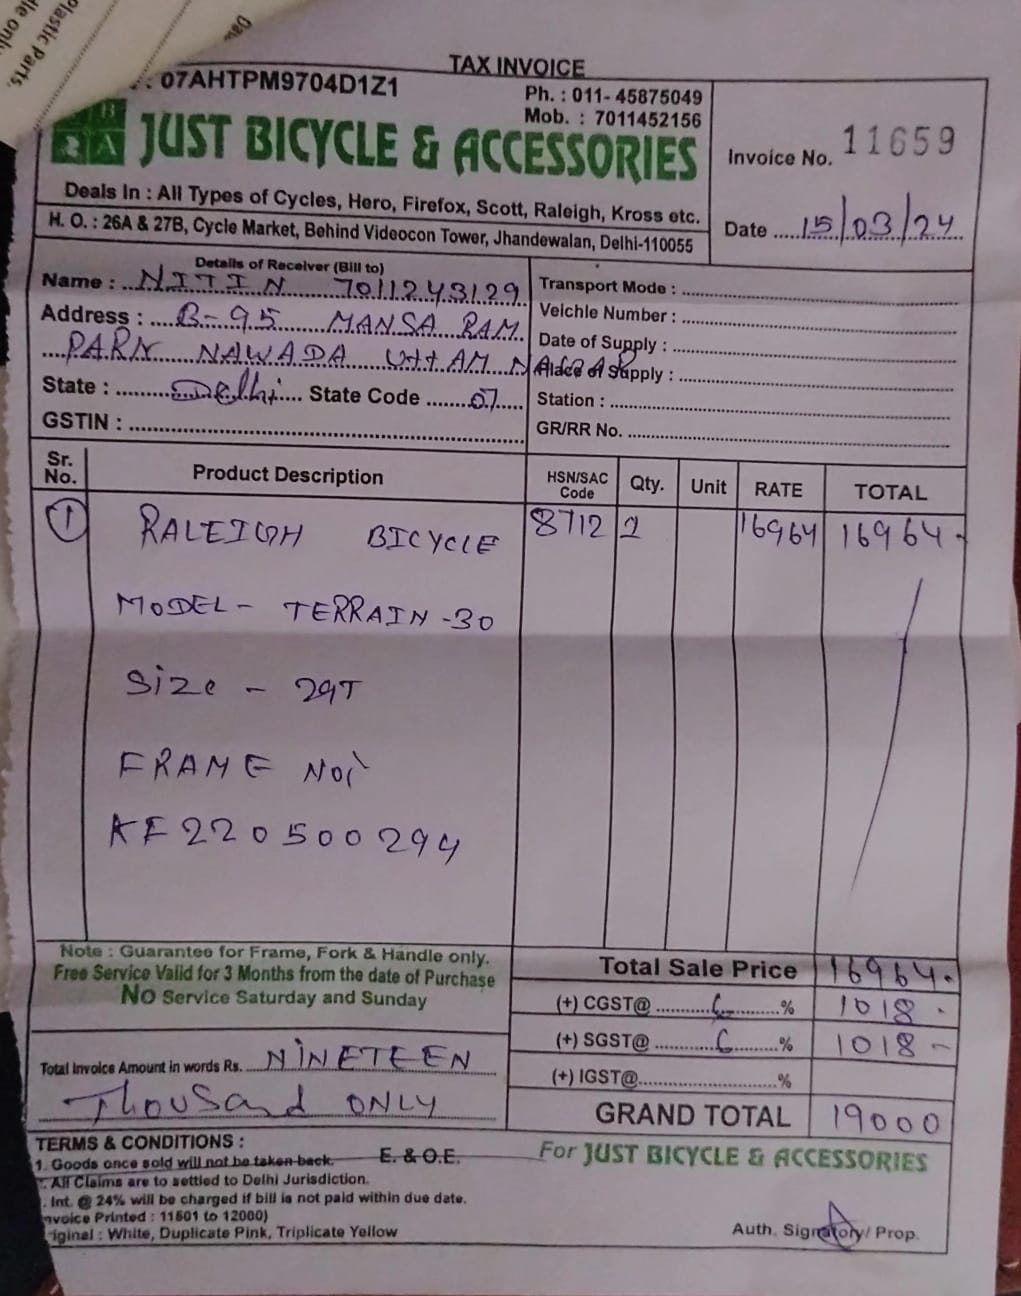 lastic Parts.
dle onl
Da
TAX INVOICE
: 07AHTPM9704D1Z1
Ph. : 011- 45875049
Mob. : 7011452156
JUST BICYCLE & ACCESSORIES
Invoice No. 11659
Deals In : All Types of Cycles, Hero, Firefox, Scott, Raleigh, Kross etc.
H. O. : 26A & 27B, Cycle Market, Behind Videocon Tower, Jhandewalan, Delhi-110055
Date 15/03/24
Details of Receiver (Bill to)
Name : NITIN 7011243129
Address : B-95 MANSA RAM
PARK NAWADA UTTAM NAGAR
State : Delhi State Code 07
GSTIN :
Transport Mode :
Veichle Number :
Date of Supply :
Place of Supply :
Station :
GR/RR No.
Sr. No. Product Description HSN/SAC Code Qty. Unit RATE TOTAL
1 RALEIGH BICYCLE 8712 1 16964 16964.
MODEL - TERRAIN -30
Size - 29T
FRAME No:
KF220500294
Note : Guarantee for Frame, Fork & Handle only.
Free Service Valid for 3 Months from the date of Purchase
NO Service Saturday and Sunday
Total Sale Price 16964.
(+) CGST@ 6 % 1018 -
(+) SGST@ 6 % 1018 -
(+) IGST@ %
GRAND TOTAL 19000
Total Invoice Amount in words Rs. NINETEEN
Thousand ONLY
TERMS & CONDITIONS :
1. Goods once sold will not be taken back. E. & O.E.
. All Claims are to settled to Delhi Jurisdiction.
. Int. @ 24% will be charged if bill is not paid within due date.
nvoice Printed : 11501 to 12000)
iginal : White, Duplicate Pink, Triplicate Yellow
For JUST BICYCLE & ACCESSORIES
Auth. Signatory/ Prop.